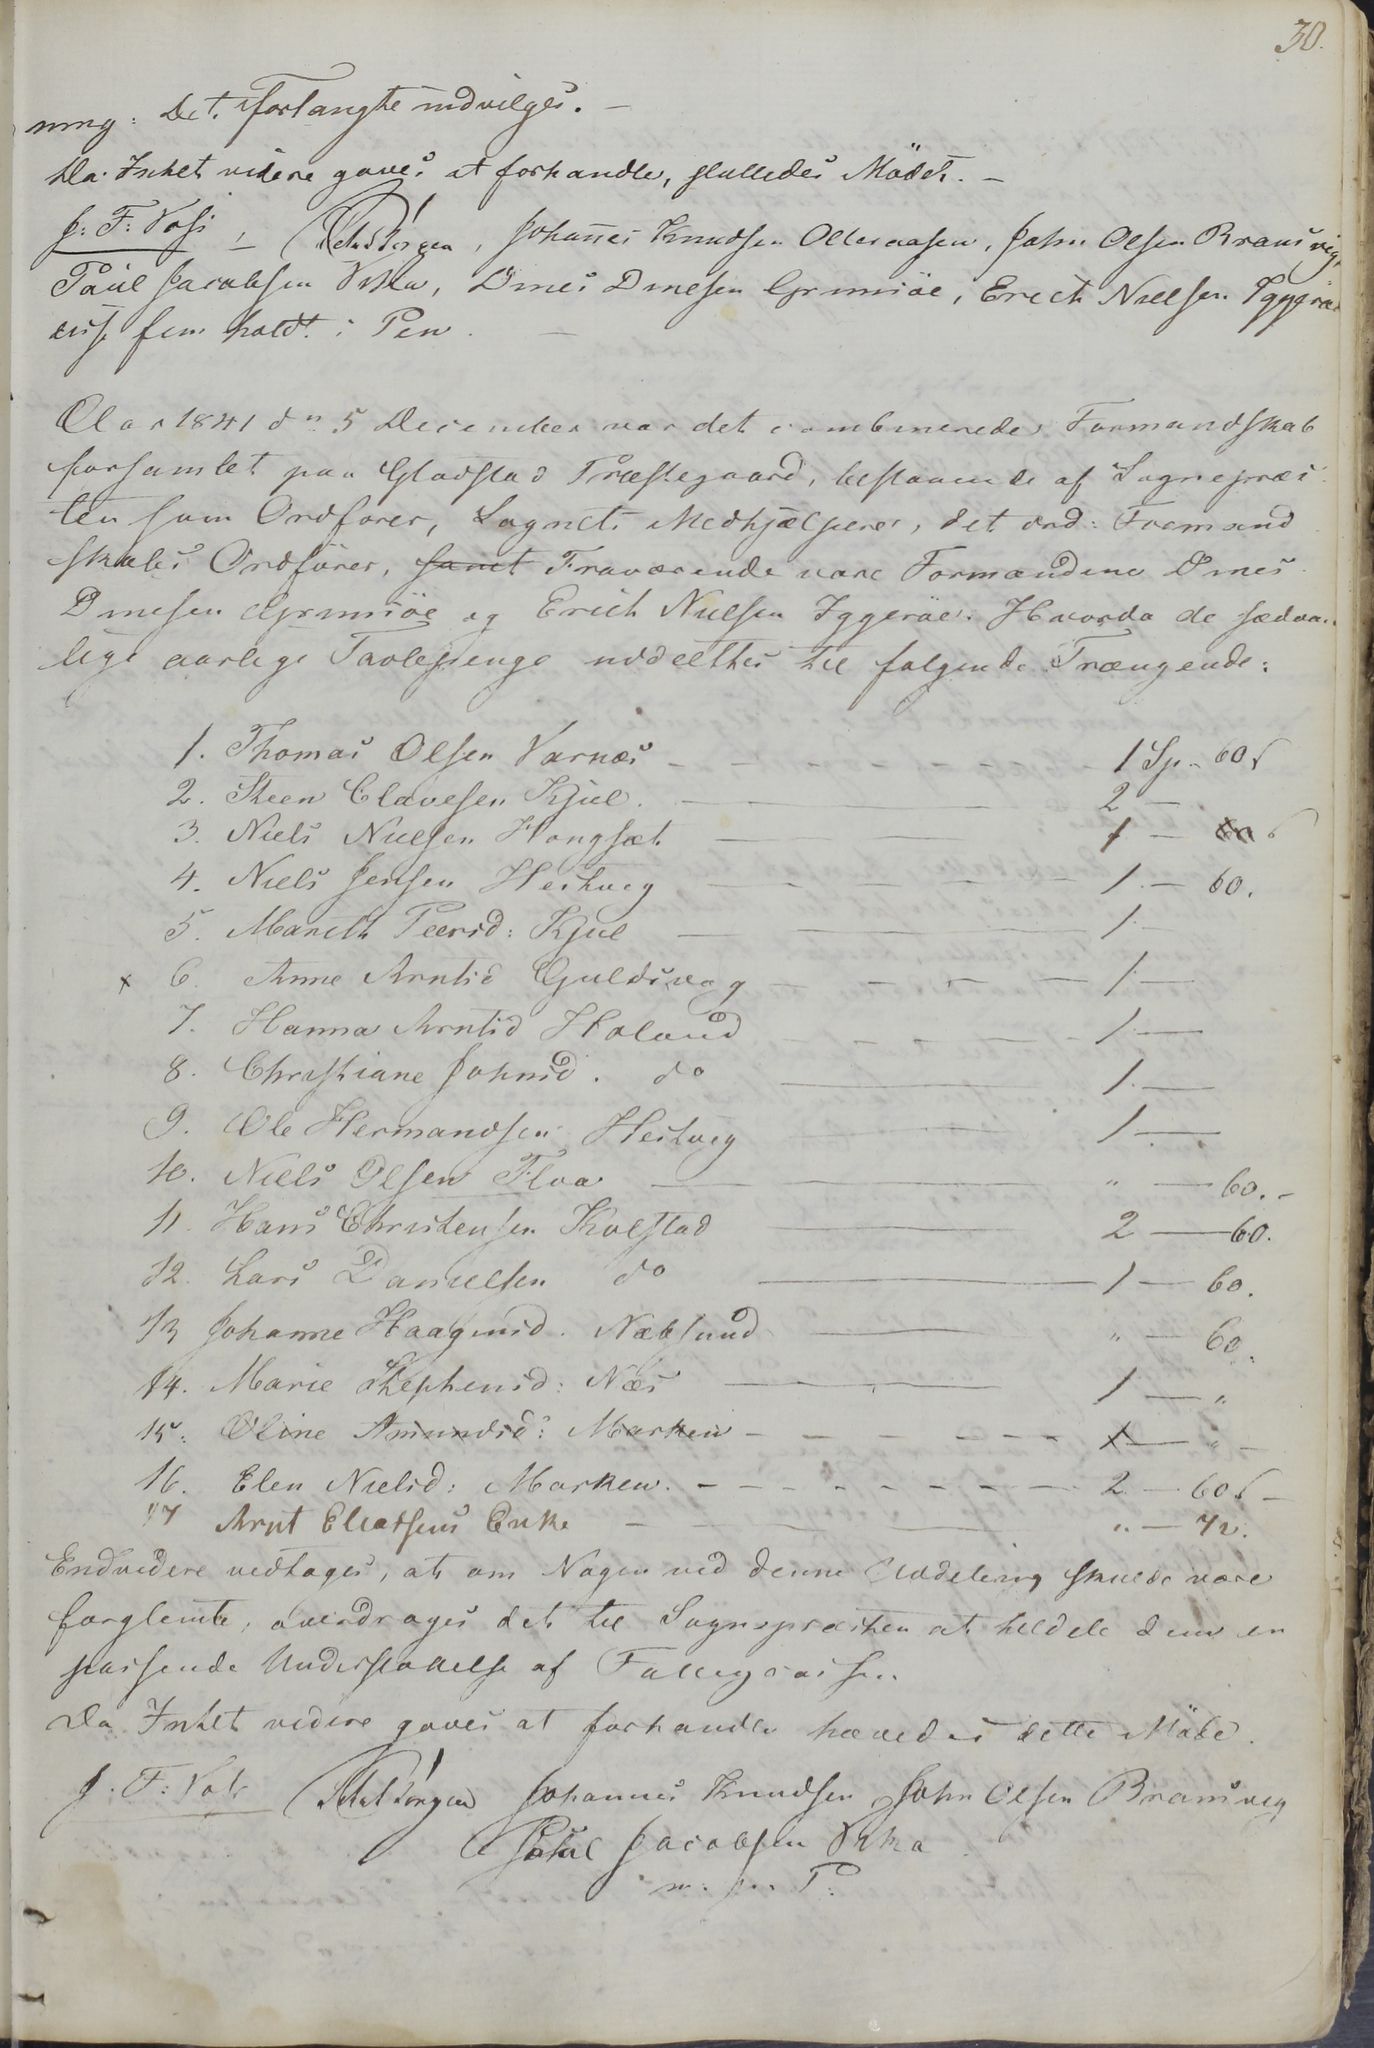 30.
ning: Det Forlangte indvilges. —
Da Intet videre gaves at forhandle, sluttedes Mödet. —
J: F: Voss, Johannes Knudsen Olderaasen, John Olsen Bransvig,
Paul Jacobsen Vikla, Dines Dinesen Grimsöe, Erich Nielsen Yggeröe
alle fem holdt i Pen. —
Aar 1841 dn 5 December var det combinerede Formandskab
forsamlet paa Gladstad Præstegaard, bestaaende af Sognepræs-
ten som Ordfører, Sognets Medhjælpere, det ord: Formand
skabs Ordfører, samt Fraværende vare Formændene Dines
Dinesen Grimsöe og Erich Nielsen Yggeröe. Hvorda de sædvan-
lige aarlige Tavlepenge uddeeltes til følgende Trængende:
1. Thomas Olsen Varnæs — 1 Sp. 60 s
2. Steen Clavesen Kjul. — 2 —
3. Niels Nielsen Hongsæt — 1 —
4. Niels Jensen Hestvig — 1 — 60.
5. Mareth Peersd: Kjul — 1 —
x 6. Anne Arntsd Guldsvog — 1 —
7. Hanna Arntsd Holand — 1 —
8. Christiane Johnsd. do — 1 —
9. Ole Hermandsen Hestvig — 1 —
10. Niels Olsen Floa — " — 60. -
11. Hans Christensen Kolstad — 2 — 60.
12. Lars Danielsen do — 1 — 60.
13 Johanne Haagensd. Næbsund — " — 60.
14. Marie Stephensd: Næs — 1 — "
15. Oline Amundsd: Marken — 1 — " —
16. Elen Nielsd: Marken. — 2 — 60 s —
17 Arnt Eliassens Enke — " — 72.
Endvidere vedtoges, at om Nogen ved denne Uddeling skulde være
forglemte, overdrages det til Sognepræsten at tildele dem en
passende Understøttelse af Fattigcassen.
Da Intet videre gaves at forhandle hævedes dette Möde.
J: F: Voss Johannes Knudsen John Olsen Bramsvig
Poul Jacobsen Vikla
m. p. P.